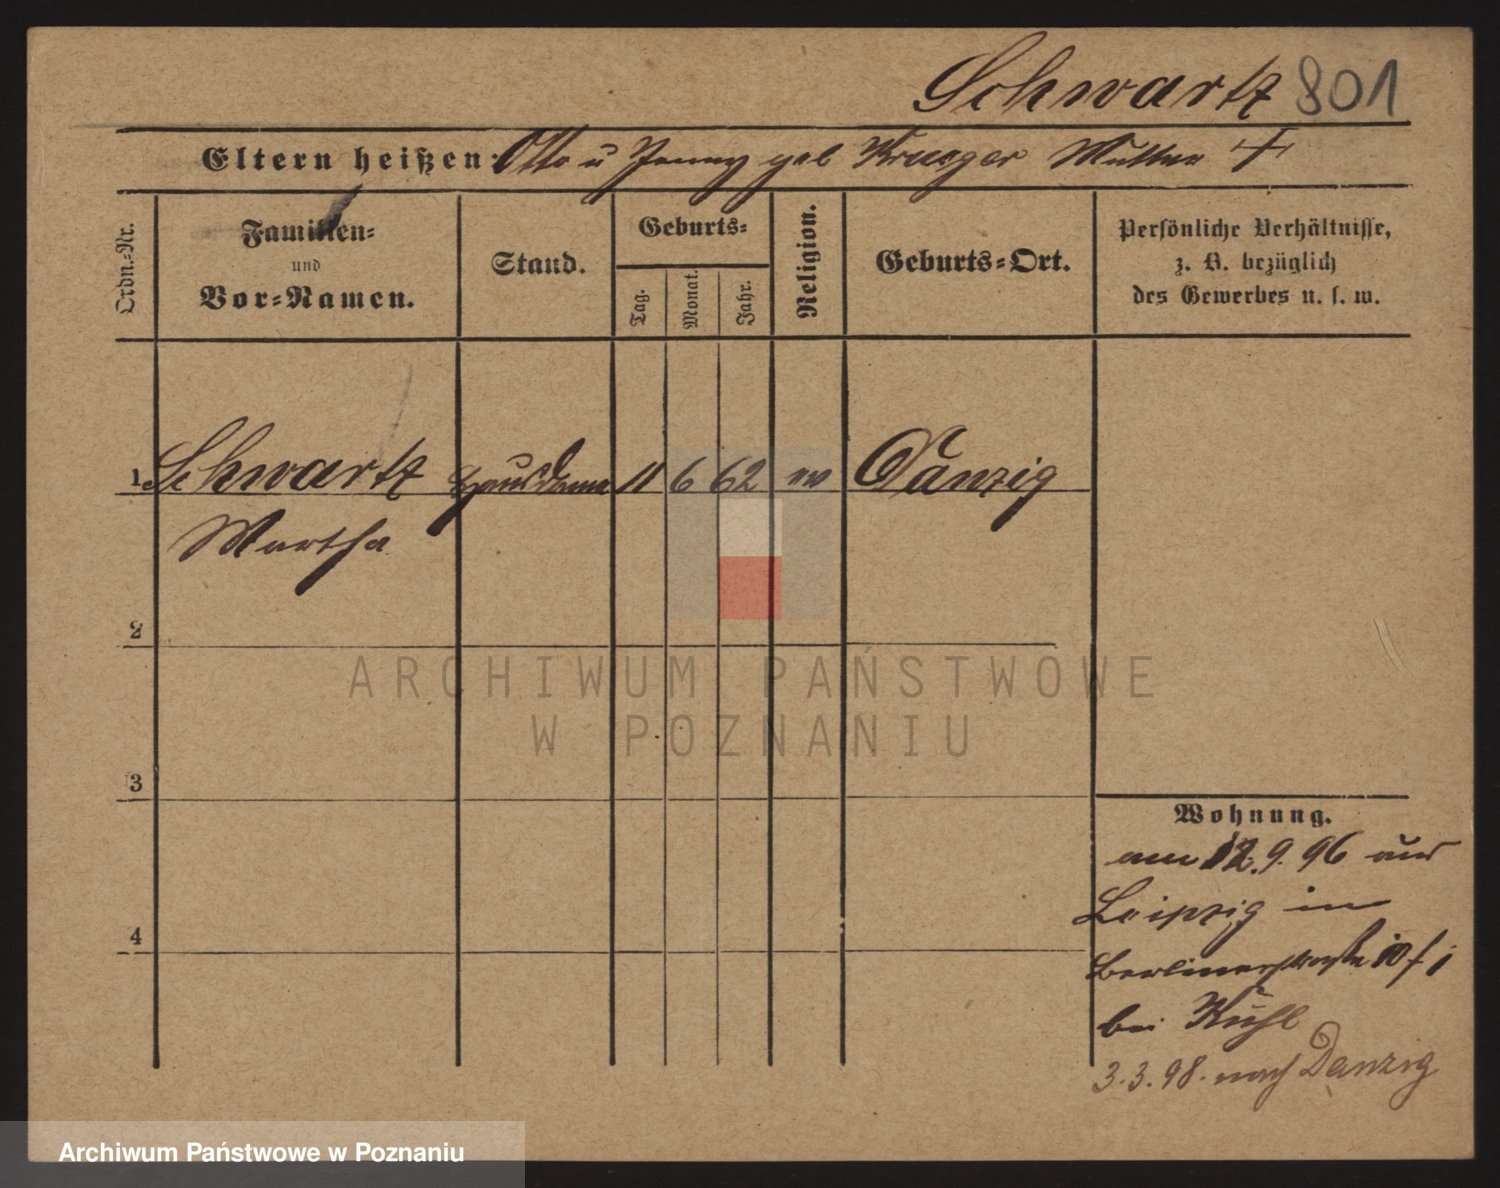 Schwartz 801
Eltern heißen: Otto u Jenny geb Krueger Mutter +
Ordn.-Nr.
Familien-
und
Vor-Namen.
Stand.
Geburts-
Tag.
Monat.
Jahr.
Religion.
Geburts-Ort.
Persönliche Verhältnisse,
z. B. bezüglich
des Gewerbes u. s. w.
1 Schwartz Hausdame 11 6 62 ev Danzig
Martha
2
3
4
Wohnung.
am 12.9.96 aus
Leipzig in
Berlinerstraße 10
bei Kühl
3.3.98. nach Danzig
ARCHIWUM PAŃSTWOWE
W POZNANIU
Archiwum Państwowe w Poznaniu